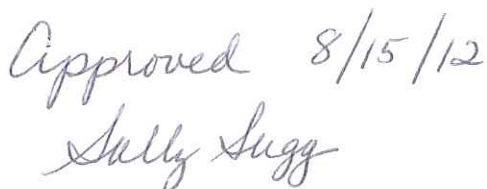 Approved 8/15/12
Sally Sugg